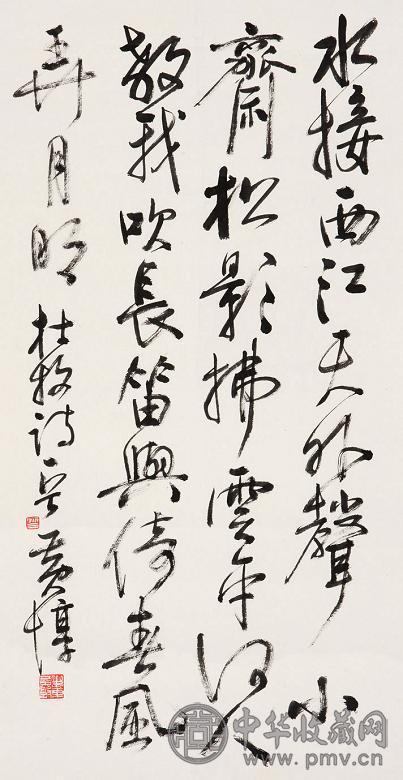 水接西江天外聲小
齋松影拂雲平何人
教我吹長笛與倚春風
弄月明 杜牧詩 黃惇
中华收藏网
www.pmv.cn